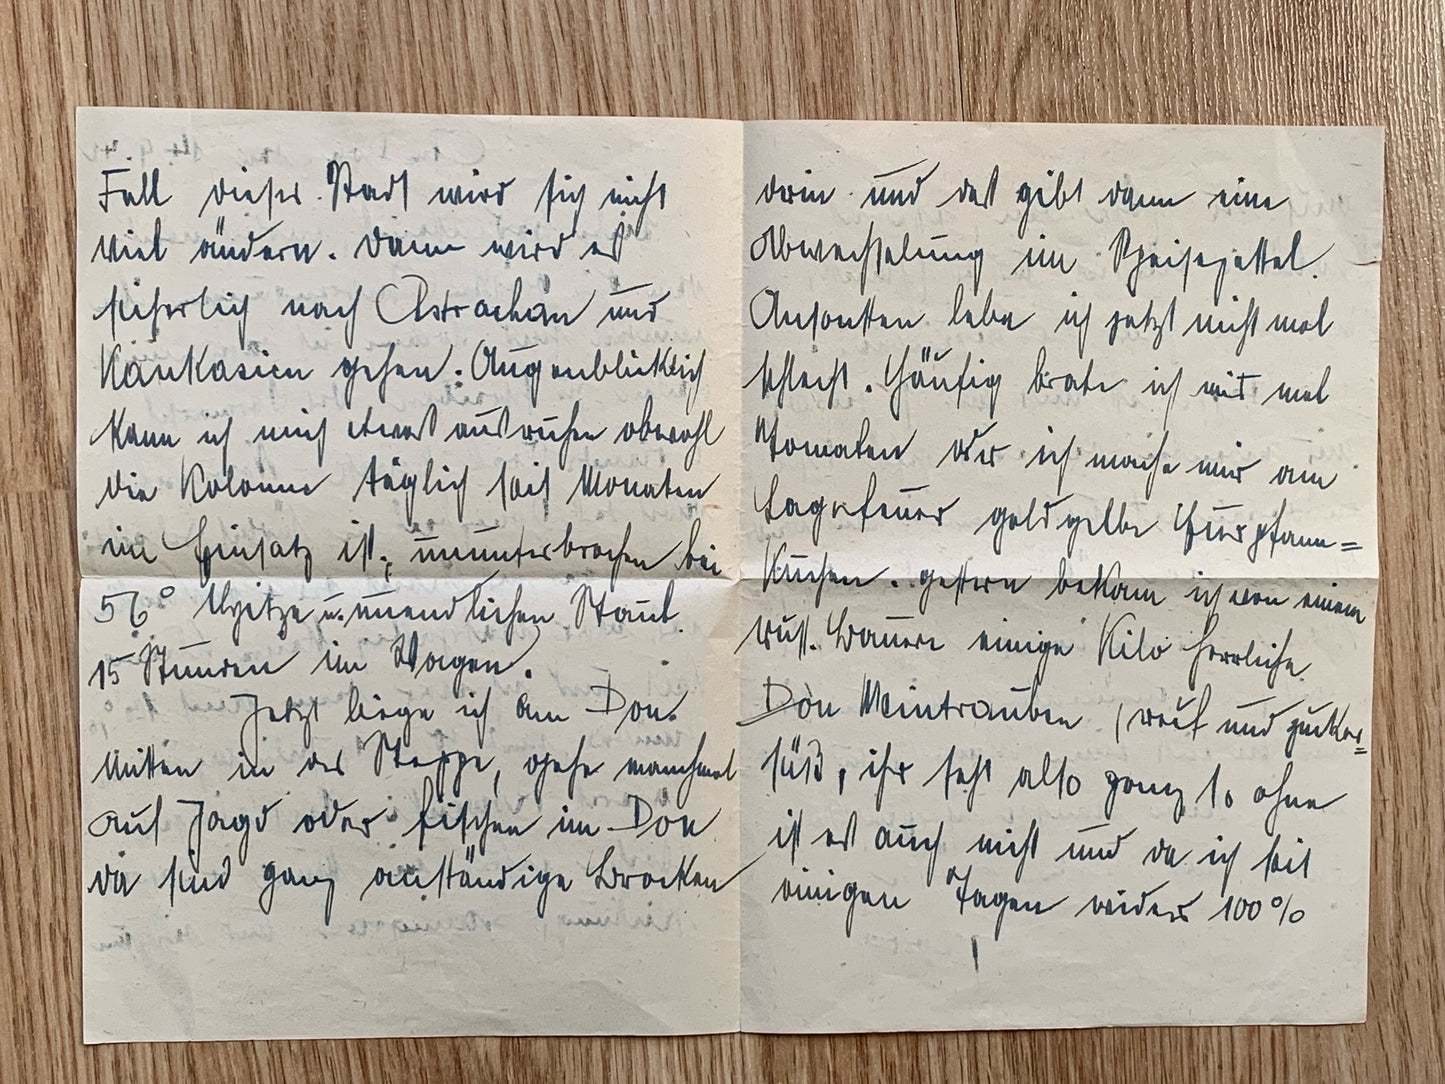 Fall dieser Stadt wird sich nicht
viel ändern. Dann wird es
sicherlich nach Astrachan und
Kaukasien gehen. Augenblicklich
kann ich mich etwas ausruhen obwohl
die Kolonne täglich seit Monaten
im Einsatz ist, ununterbrochen bei
56° Hitze u. unendlichen Staub.
15 Stunden im Wagen.
Jetzt liege ich am Don.
Mitten in der Steppe, gehe manchmal
auf Jagd oder fischen im Don
da sind ganz anständige Brocken
drin und das gibt dann eine
Abwechselung im Speisezettel.
Ansonsten lebe ich jetzt nicht mal
schlecht. Häufig brate ich mir mal
Tomaten oder ich mache mir am
Lagerfeuer goldgelbe Eierpfann=
kuchen. gestern bekam ich von einem
russ. Bauern einige Kilo herrliche
Don Weintrauben, reif und zucker=
süß, ihr seht also ganz so ohne
ist es auch nicht und da ich seit
einigen Tagen wieder 100%